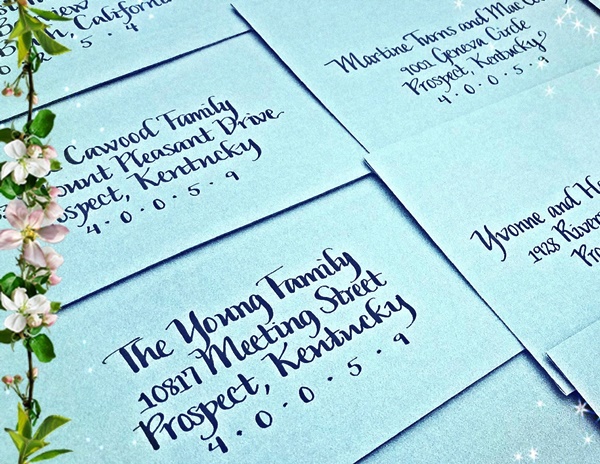 California
5 · 4
Martine Turns and Mae
9001 Geneva Circle
Prospect, Kentucky
4 · 0 · 0 · 5 · 9
Cawood Family
ount Pleasant Drive
ospect, Kentucky
4 · 0 · 0 · 5 · 9
Yvonne and
1928 River
Pro
The Young Family
10817 Meeting Street
Prospect, Kentucky
4 · 0 · 0 · 5 · 9